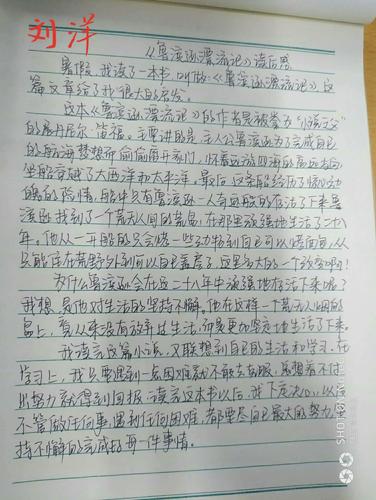 刘洋
《鲁滨逊漂流记》读后感
暑假,我读了一本书,叫做《鲁滨逊漂流记》,这
篇文章给了我很大的启发。
这本《鲁滨逊漂流记》的作者是被誉为“小说之父”
的丹尼尔·笛福。主要讲的是主人公鲁滨逊为了完成自己
的航海梦想而偷偷离开家门,怀着远游四海的高远志向
坐船穿越了大西洋和太平洋。最后,这条船经历了惊心动
魄的险情,船中只有鲁滨逊一人奇迹般的存活了下来。鲁
滨逊找到了一个荒无人烟的荒岛,在那里顽强地生活了二十八
年。他从一开始的只会
只能住在荒野外到可以自己盖房子,这是多大的一个改变啊!
为什么鲁滨逊会在这二十八年中顽强地存活下来呢?
我想是他对生活的坚持不懈。他在这样一个荒无人烟的
岛上,看从来没有放弃过生活,而是更加坚定地生活了下来。
我读完这篇小说,又联想到自己的生活和学习。在
学习上,我只要遇到一点困难就不敢去克服,总想着不付
出努力就得到回报。读完这本书以后,我下定决心,以后
不管做任何事,遇到任何困难,都要尽自己最大的努力,坚
持不懈的完成好每一件事情。
SHOT ON